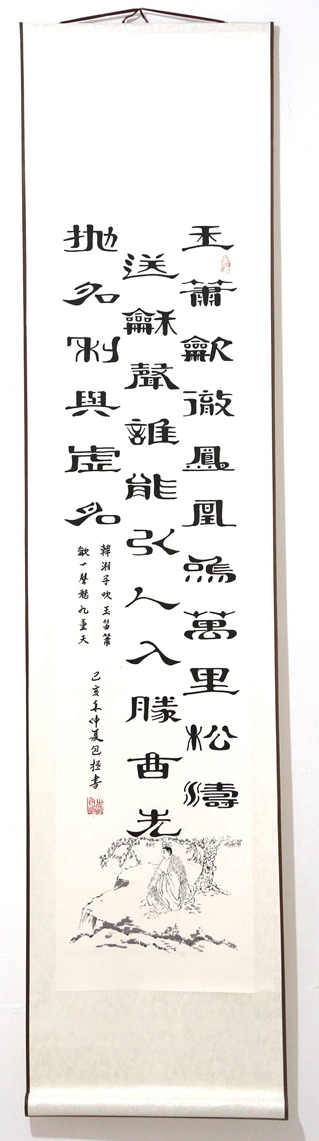 玉簫龡徹鳳凰鳴萬里松濤
送龢聲誰能引人入勝曲先
拋名利與虛名
韓湘子吹玉笛簫
一聲九重天
己亥年仲夏書